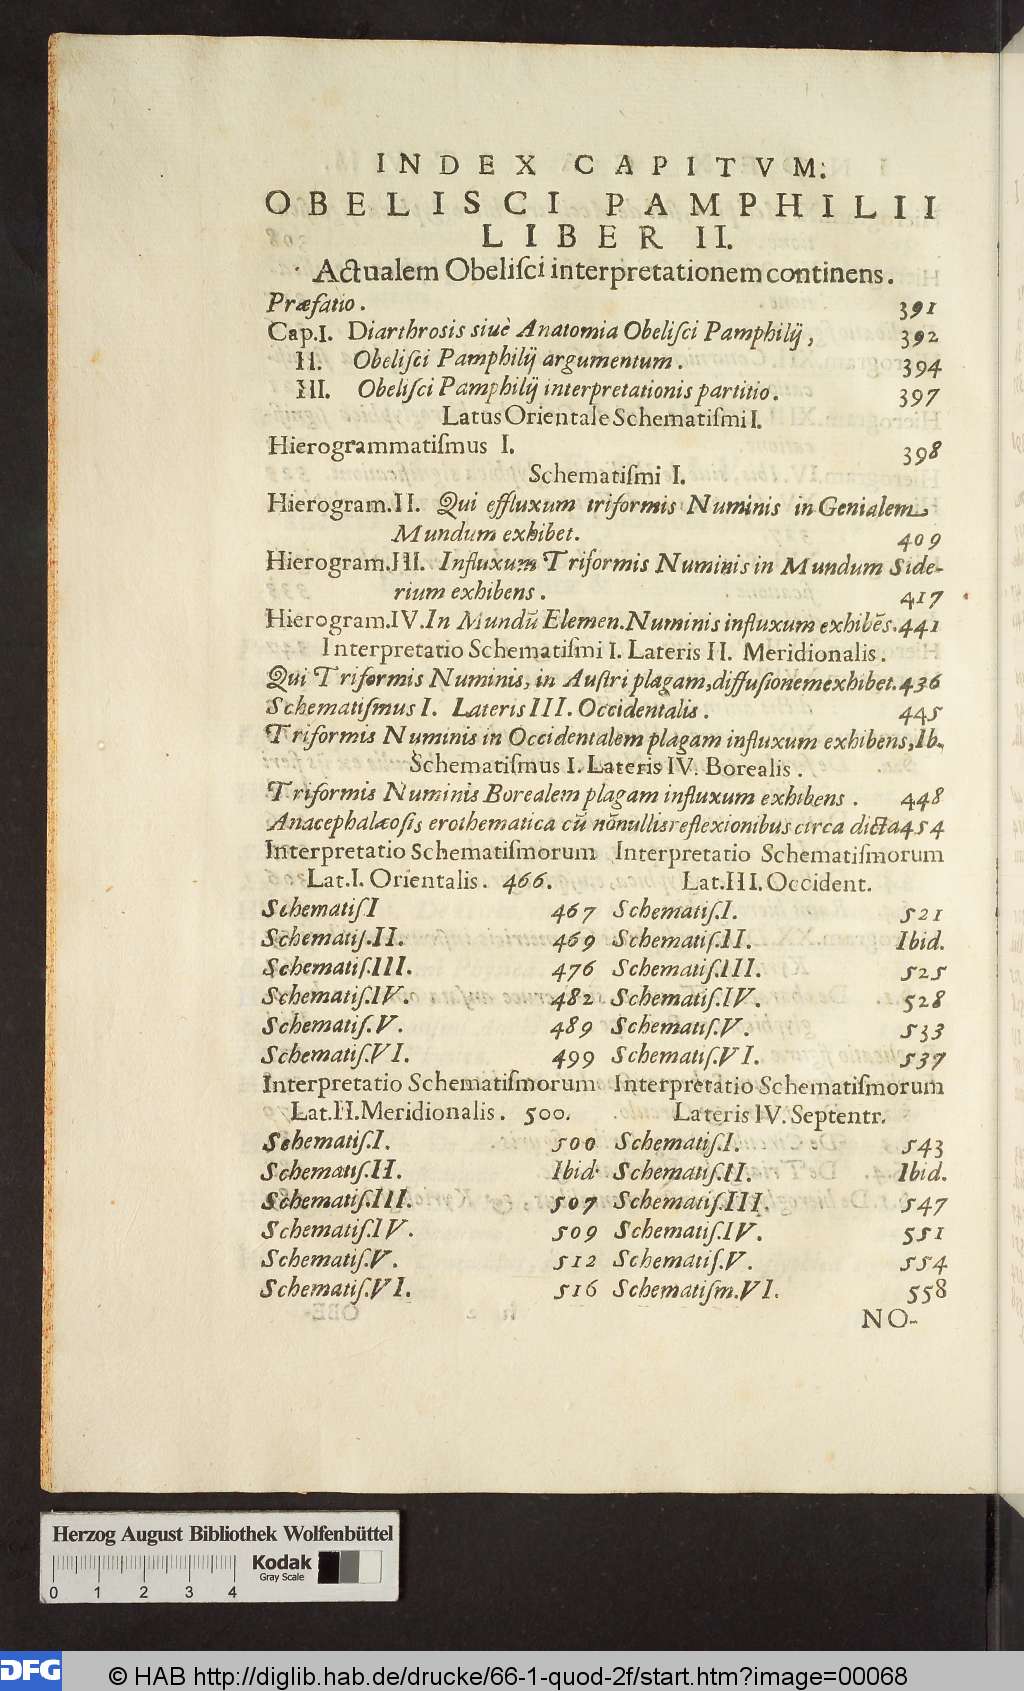 INDEX CAPITVM.
OBELISCI PAMPHILII
LIBER II.
Actualem Obeliſci interpretationem continens.
Præfatio. 391
Cap.I. Diarthrosis siuè Anatomia Obeliſci Pamphilij, 392
II. Obeliſci Pamphilij argumentum. 394
III. Obeliſci Pamphilij interpretationis partitio. 397
Latus Orientale Schematiſmi I.
Hierogrammatiſmus I. 398
Schematiſmi I.
Hierogram.II. Qui effluxum triformis Numinis in Genialem
Mundum exhibet. 409
Hierogram.III. Influxum Triformis Numinis in Mundum Side-
rium exhibens. 417
Hierogram.IV. In Mundũ Elemen. Numinis influxum exhibẽs. 441
Interpretatio Schematiſmi I. Lateris II. Meridionalis.
Qui Triformis Numinis, in Auſtri plagam, diffuſionem exhibet. 436
Schematiſmus I. Lateris III. Occidentalis. 445
Triformis Numinis in Occidentalem plagam influxum exhibens, Ib.
Schematiſmus I. Lateris IV. Borealis.
Triformis Numinis Borealem plagam influxum exhibens. 448
Anacephalæosis erothematica cũ nõnullis reflexionibus circa dicta 454
Interpretatio Schematiſmorum Interpretatio Schematiſmorum
Lat.I. Orientalis. 466. Lat.III. Occident.
Schematiſ I 467 Schematiſ.I. 521
Schematiſ.II. 469 Schematiſ.II. Ibid.
Schematiſ.III. 476 Schematiſ.III. 525
Schematiſ.IV. 482 Schematiſ.IV. 528
Schematiſ.V. 489 Schematiſ.V. 533
Schematiſ.VI. 499 Schematiſ.VI. 537
Interpretatio Schematiſmorum Interpretatio Schematiſmorum
Lat.II. Meridionalis. 500. Lateris IV. Septentr.
Schematiſ.I. 500 Schematiſ.I. 543
Schematiſ.II. Ibid. Schematiſ.II. Ibid.
Schematiſ.III. 507 Schematiſ.III. 547
Schematiſ.IV. 509 Schematiſ.IV. 551
Schematiſ.V. 512 Schematiſ.V. 554
Schematiſ.VI. 516 Schematiſm.VI. 558
NO-
Herzog August Bibliothek Wolfenbüttel
Kodak
Gray Scale
0 1 2 3 4
DFG © HAB http://diglib.hab.de/drucke/66-1-quod-2f/start.htm?image=00068